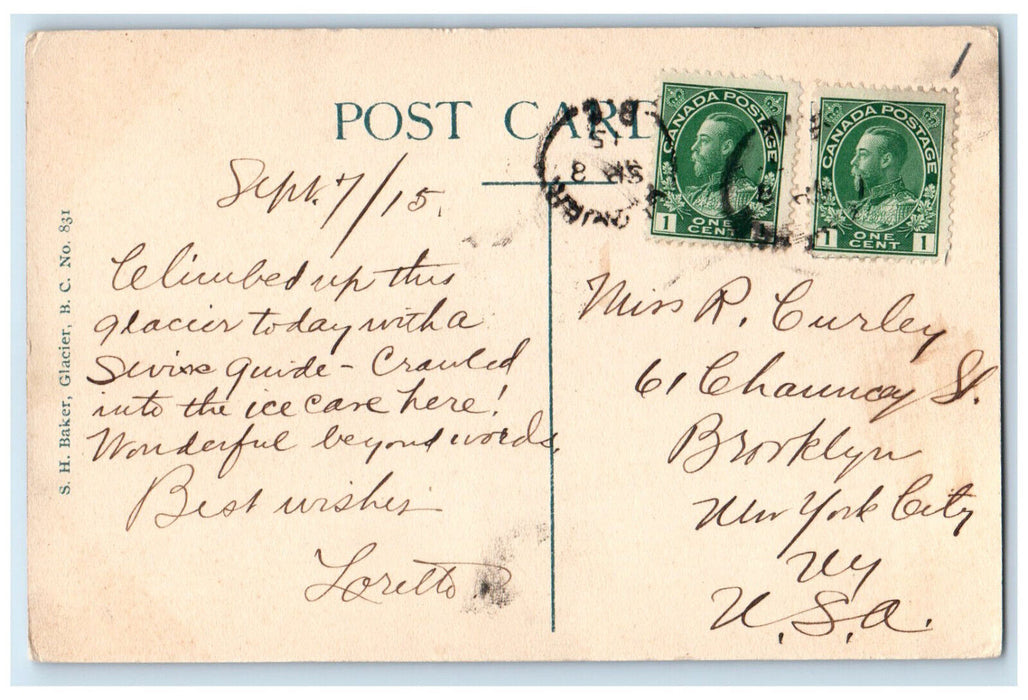 POST CARD
CANADA POSTAGE
1 ONE CENT
CANADA POSTAGE
1 ONE CENT 1
B.C.
15
SP 8
Sept. 7/15.
Climbed up this
glacier today with a
Swiss guide - Crawled
into the ice cave here!
Wonderful beyond words.
Best wishes
Loretto
S. H. Baker, Glacier, B. C. No. 831
Miss R. Curley
61 Chauncey St.
Brooklyn
New York City
NY
U.S.A.